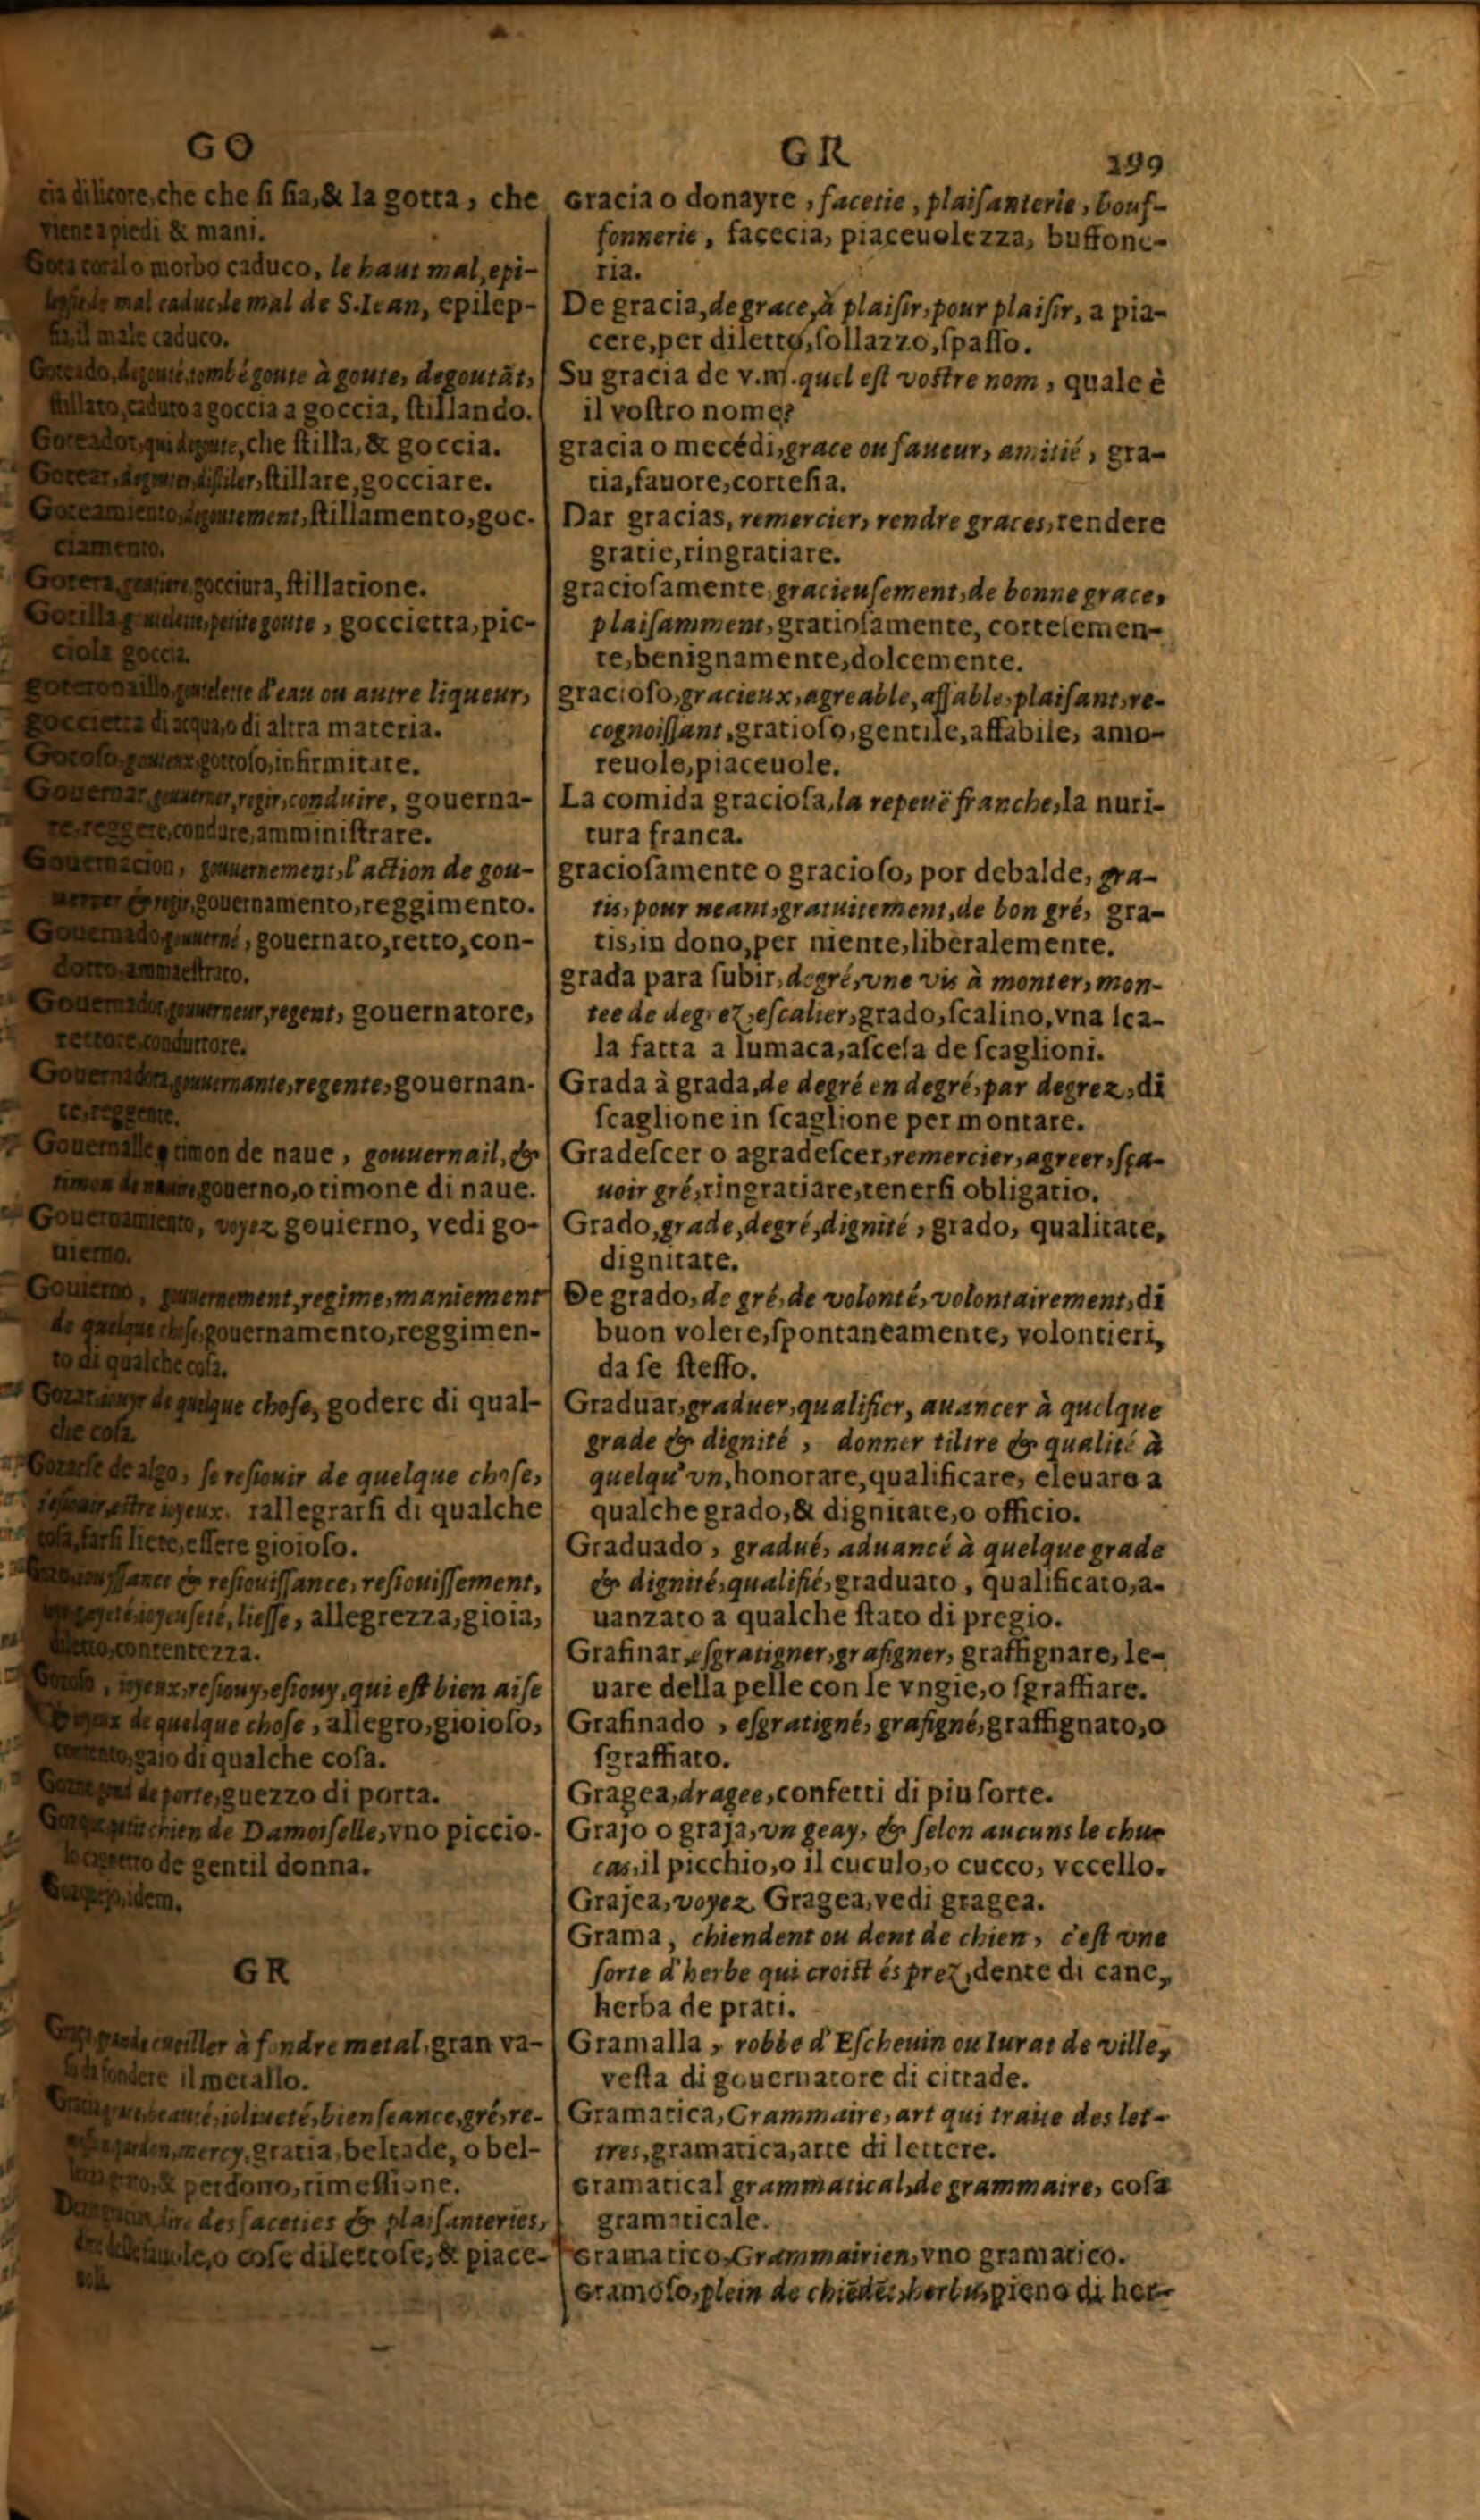 GO
cia di licore, che che ſi ſia, & la gotta, che
viene a piedi & mani.
Gota coral o morbo caduco, le haut mal, epi-
mal caduc le mal de S. Iean, epilep-
ſia, il male caduco.
tombé goute à goute, degoutāt,
ſtillato, caduto a goccia a goccia, ſtillando.
Goteador, qui degoute, che ſtilla, & goccia.
Gotear, degouter, diſtiler, ſtillare, gocciare.
Goteamiento, degoutement, ſtillamento, goc-
ciamento.
Gotera, goutiere, gocciura, ſtillatione.
Gotilla petite goute, goccietta, pic-
ciola goccia.
d'eau ou autre liqueur,
goccietta di acqua, o di altra materia.
Gotoſo, gouteux, gottoſo, infirmitate.
Gouernar, gouuerner, regir, conduire, gouerna-
re, reggere, condure, amminiſtrare.
Gouernacion, gouuernement, l'action de gou-
uerner & regir, gouernamento, reggimento.
Gouernado, gouuerné, gouernato, retto, con-
dotto, ammaeſtrato.
Gouernador, gouuerneur, regent, gouernatore,
rettore, conduttore.
Gouernadora, gouuernante, regente, gouernan-
te, reggente.
Gouernalle o timon de naue, gouuernail, &
timon de nauire, gouerno, o timone di naue.
Gouernamiento, voyez gouierno, vedi go-
uierno.
Gouierno, gouuernement, regime, maniement
de quelque choſe, gouernamento, reggimen-
to di qualche coſa.
Gozar, iouyr de quelque choſe, godere di qual-
che coſa.
Gozarſe de algo, ſe reſiouir de quelque choſe,
eſtre ioyeux. rallegrarſi di qualche
coſa, farſi liete, eſſere gioioſo.
& reſiouiſſance, reſiouiſſement,
lieſſe, allegrezza, gioia,
diletto, contentezza.
Gozoſo, ioyeux, reſiouy, eſiouy, qui eſt bien aiſe
de quelque choſe, allegro, gioioſo,
contento, gaio di qualche coſa.
de porte, guezzo di porta.
petit chien de Damoiſelle, vno piccio-
de gentil donna.
idem.
GR
cueiller à fondre metal, gran va-
fondere il metallo.
beauté, ioliueté, bien ſeance, gré, re-
mercy, gratia, beltade, o bel-
& perdono, rimeſſione.
dire des faceties & plaiſanteries,
o coſe dilettoſe, & piace-
GR 299
Gracia o donayre, facetie, plaiſanterie, bouf-
fonnerie, facecia, piaceuolezza, buffone-
ria.
De gracia, de grace, à plaiſir, pour plaiſir, a pia-
cere, per diletto, ſollazzo, ſpaſſo.
Su gracia de v.m. quel eſt voſtre nom, quale è
il voſtro nome?
gracia o mecédi, grace ou faueur, amitié, gra-
tia, fauore, corteſia.
Dar gracias, remercier, rendre graces, rendere
gratie, ringratiare.
gracioſamente, gracieuſement, de bonne grace,
plaiſamment, gratioſamente, corteſemen-
te, benignamente, dolcemente.
gracioſo, gracieux, agreable, affable, plaiſant, re-
cognoiſſant, gratioſo, gentile, affabile, amo-
reuole, piaceuole.
La comida gracioſa, la repeuë franche, la nuri-
tura franca.
gracioſamente o gracioſo, por debalde, gra-
tis, pour neant, gratuitement, de bon gré, gra-
tis, in dono, per niente, liberalemente.
grada para ſubir, degré, vne vis à monter, mon-
tee de degrez, eſcalier, grado, ſcalino, vna ſca-
la fatta a lumaca, aſceſa de ſcaglioni.
Grada à grada, de degré en degré, par degrez, di
ſcaglione in ſcaglione per montare.
Gradeſcer o agradeſcer, remercier, agreer, ſça-
uoir gré, ringratiare, tenerſi obligatio.
Grado, grade, degré, dignité, grado, qualitate,
dignitate.
De grado, de gré, de volonté, volontairement, di
buon volere, ſpontaneamente, volontieri,
da ſe ſteſſo.
Graduar, graduer, qualifier, auancer à quelque
grade & dignité, donner tiltre & qualité à
quelqu'vn, honorare, qualificare, eleuare a
qualche grado, & dignitate, o officio.
Graduado, gradué, aduancé à quelque grade
& dignité, qualifié, graduato, qualificato, a-
uanzato a qualche ſtato di pregio.
Grafinar, eſgratigner, grafigner, graffignare, le-
uare della pelle con le vngie, o ſgraffiare.
Grafinado, eſgratigné, grafigné, graffignato, o
ſgraffiato.
Gragea, dragee, confetti di piu ſorte.
Grajo o graja, vn geay, & ſelon aucuns le chu-
cas, il picchio, o il cuculo, o cucco, vccello.
Grajea, voyez Gragea, vedi gragea.
Grama, chiendent ou dent de chien, c'eſt vne
ſorte d'herbe qui croiſt és prez, dente di cane,
herba de prati.
Gramalla, robbe d'Eſcheuin ou Iurat de ville,
veſta di gouernatore di cittade.
Gramatica, Grammaire, art qui traite des let-
tres, gramatica, arte di lettere.
Gramatical grammatical, de grammaire, coſa
gramaticale.
Gramatico, Grammairien, vno gramatico.
Gramoſo, plein de chiēdēt, herbu, pieno di her-